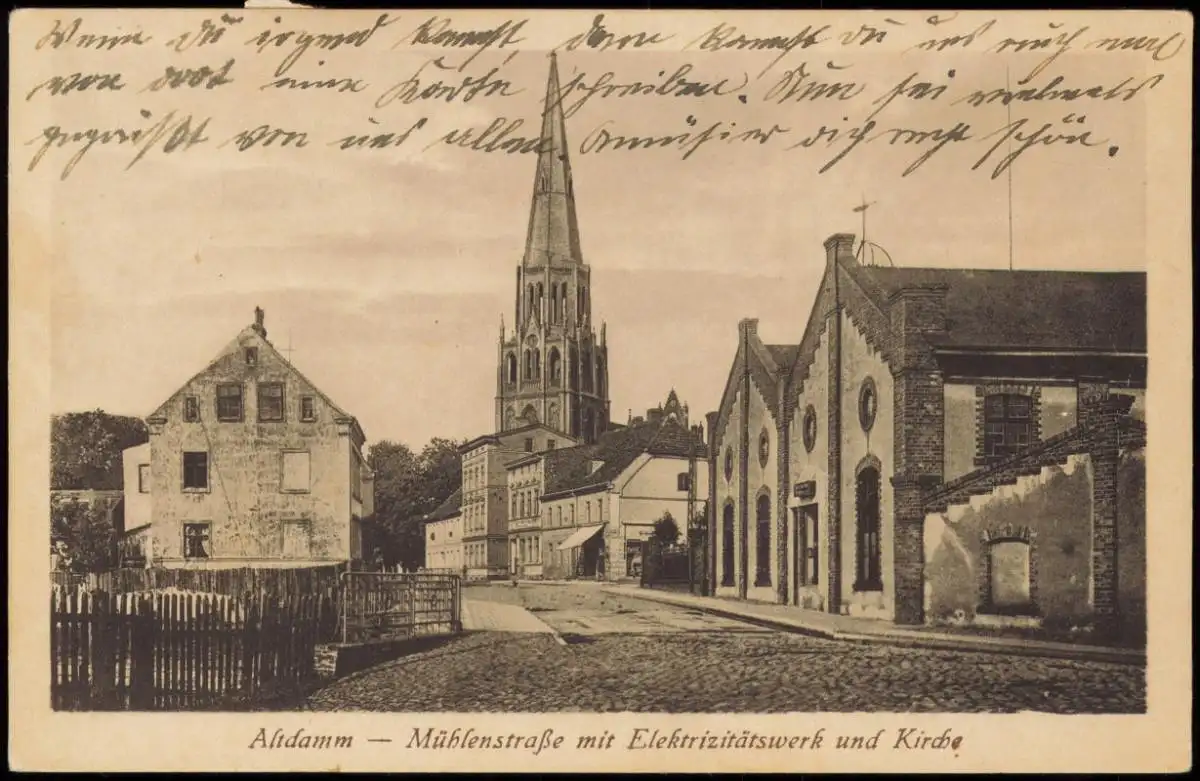 Wenn du irgend kannst, dann kannst du uns auch mal
von dort eine Karte schreiben. Nun sei vielmals
gegrüßt von uns allen. Amüsier dich recht schön.
Altdamm — Mühlenstraße mit Elektrizitätswerk und Kirche